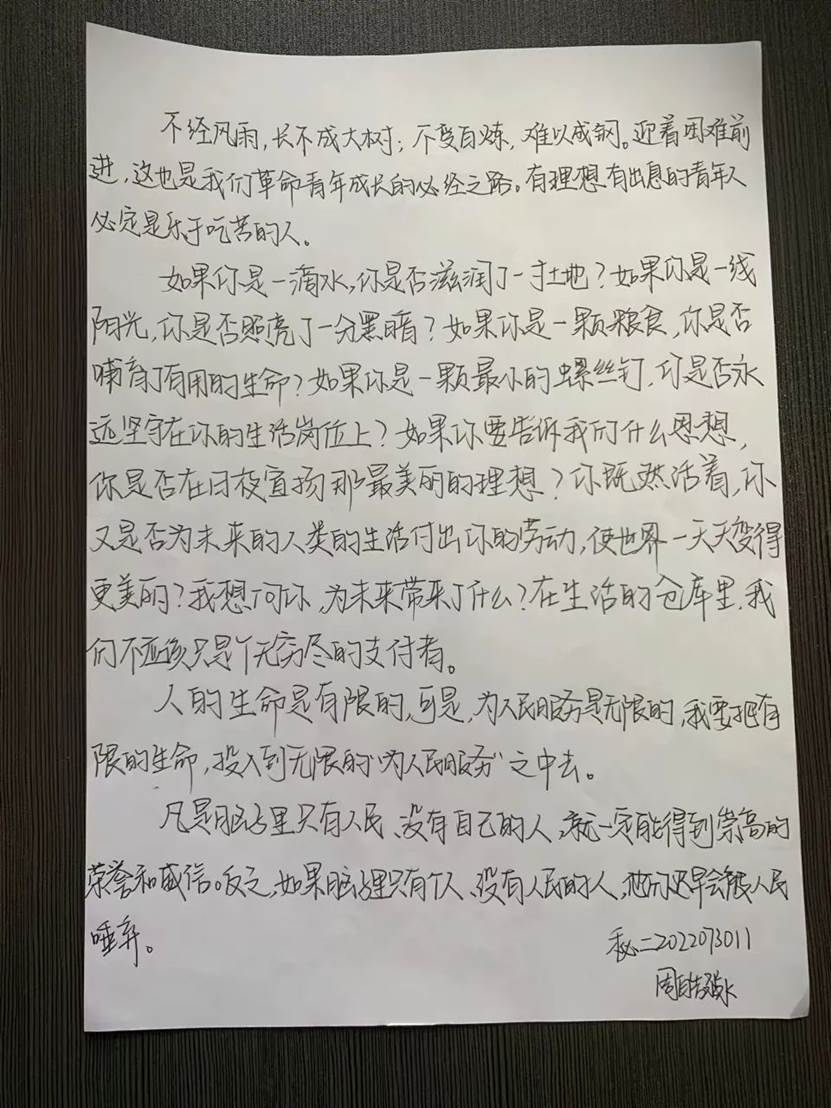 不经风雨，长不成大树；不受百炼，难以成钢。迎着困难前
进，这也是我们革命青年成长的必经之路。有理想有出息的青年人
必定是乐于吃苦的人。
如果你是一滴水，你是否滋润了一寸土地？如果你是一线
阳光，你是否照亮了一分黑暗？如果你是一颗粮食，你是否
哺育了有用的生命？如果你是一颗最小的螺丝钉，你是否永
远坚守在你的生活岗位上？如果你要告诉我们什么思想，
你是否在日夜宣扬那最美丽的理想？你既然活着，你
又是否为未来的人类的生活付出你的劳动，使世界一天天变得
更美丽？我想问你，为未来带来了什么？在生活的仓库里，我
们不应该只是个无穷尽的支付者。
人的生命是有限的，可是，为人民服务是无限的，我要把有
限的生命，投入到无限的“为人民服务”之中去。
凡是脑子里只有人民、没有自己的人，就一定能得到崇高的
荣誉和威信。反之，如果脑子里只有个人、没有人民的人，他们迟早会被人民
唾弃。
秘二2022073011
周